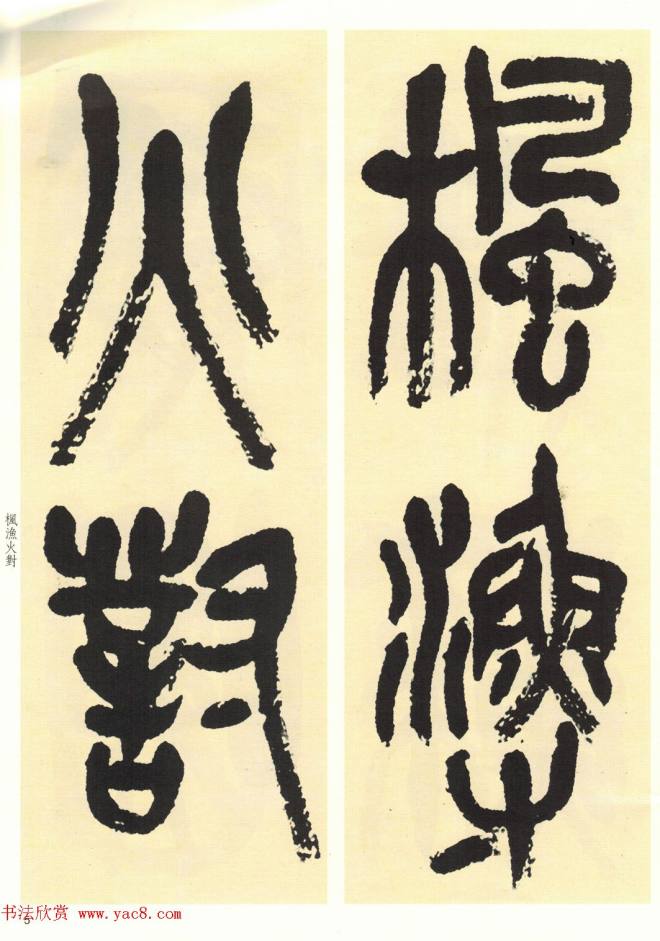 楓漁
火對
楓漁火對
书法欣赏 www.yac8.com
5